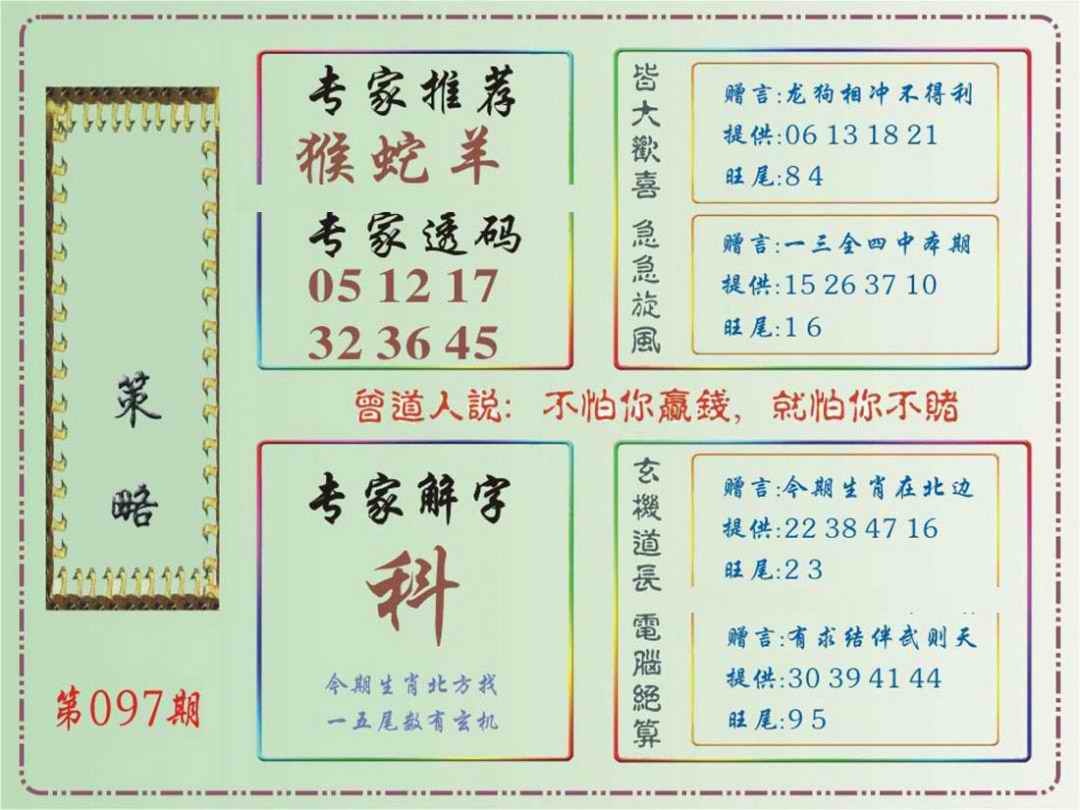 策略
第097期
专家推荐
猴蛇羊
专家透码
05 12 17
32 36 45
皆大歡喜
赠言:龙狗相冲不得利
提供:06 13 18 21
旺尾:8 4
急急旋風
赠言:一三全四中本期
提供:15 26 37 10
旺尾:1 6
曾道人説: 不怕你贏錢, 就怕你不賭
专家解字
科
今期生肖北方找
一五尾数有玄机
玄機道長
赠言:今期生肖在北边
提供:22 38 47 16
旺尾:2 3
電腦絕算
赠言:有求结伴武则天
提供:30 39 41 44
旺尾:9 5